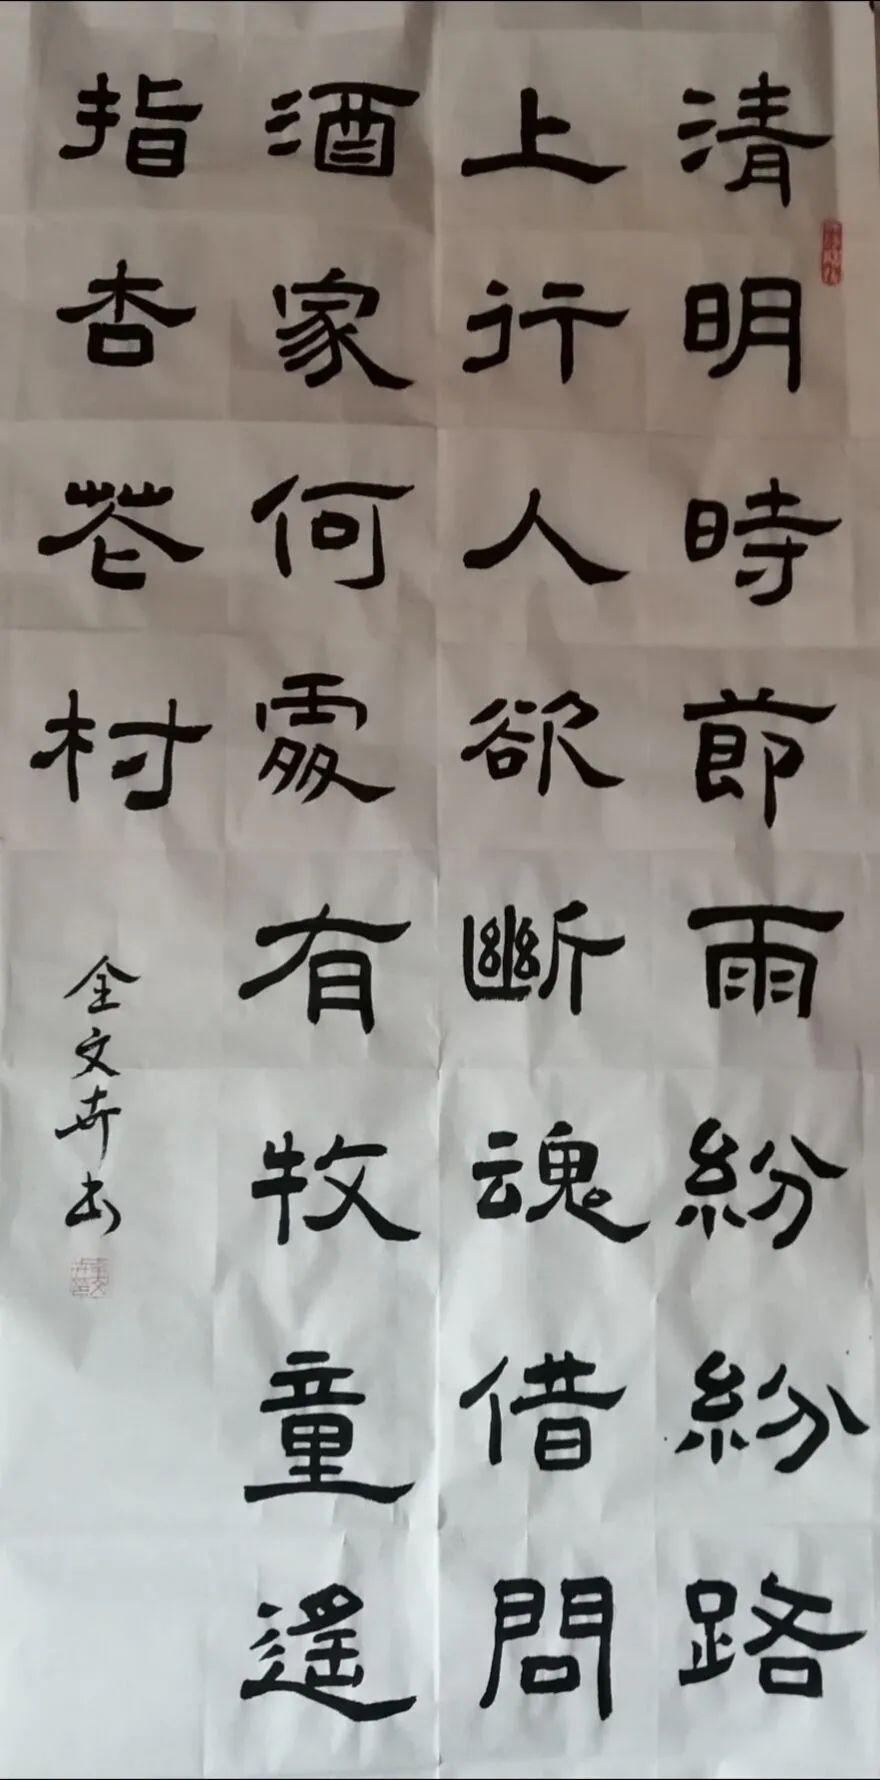 清明時節雨紛紛路
上行人欲斷魂借問
酒家何處有牧童遙
指杏花村
金文卉书